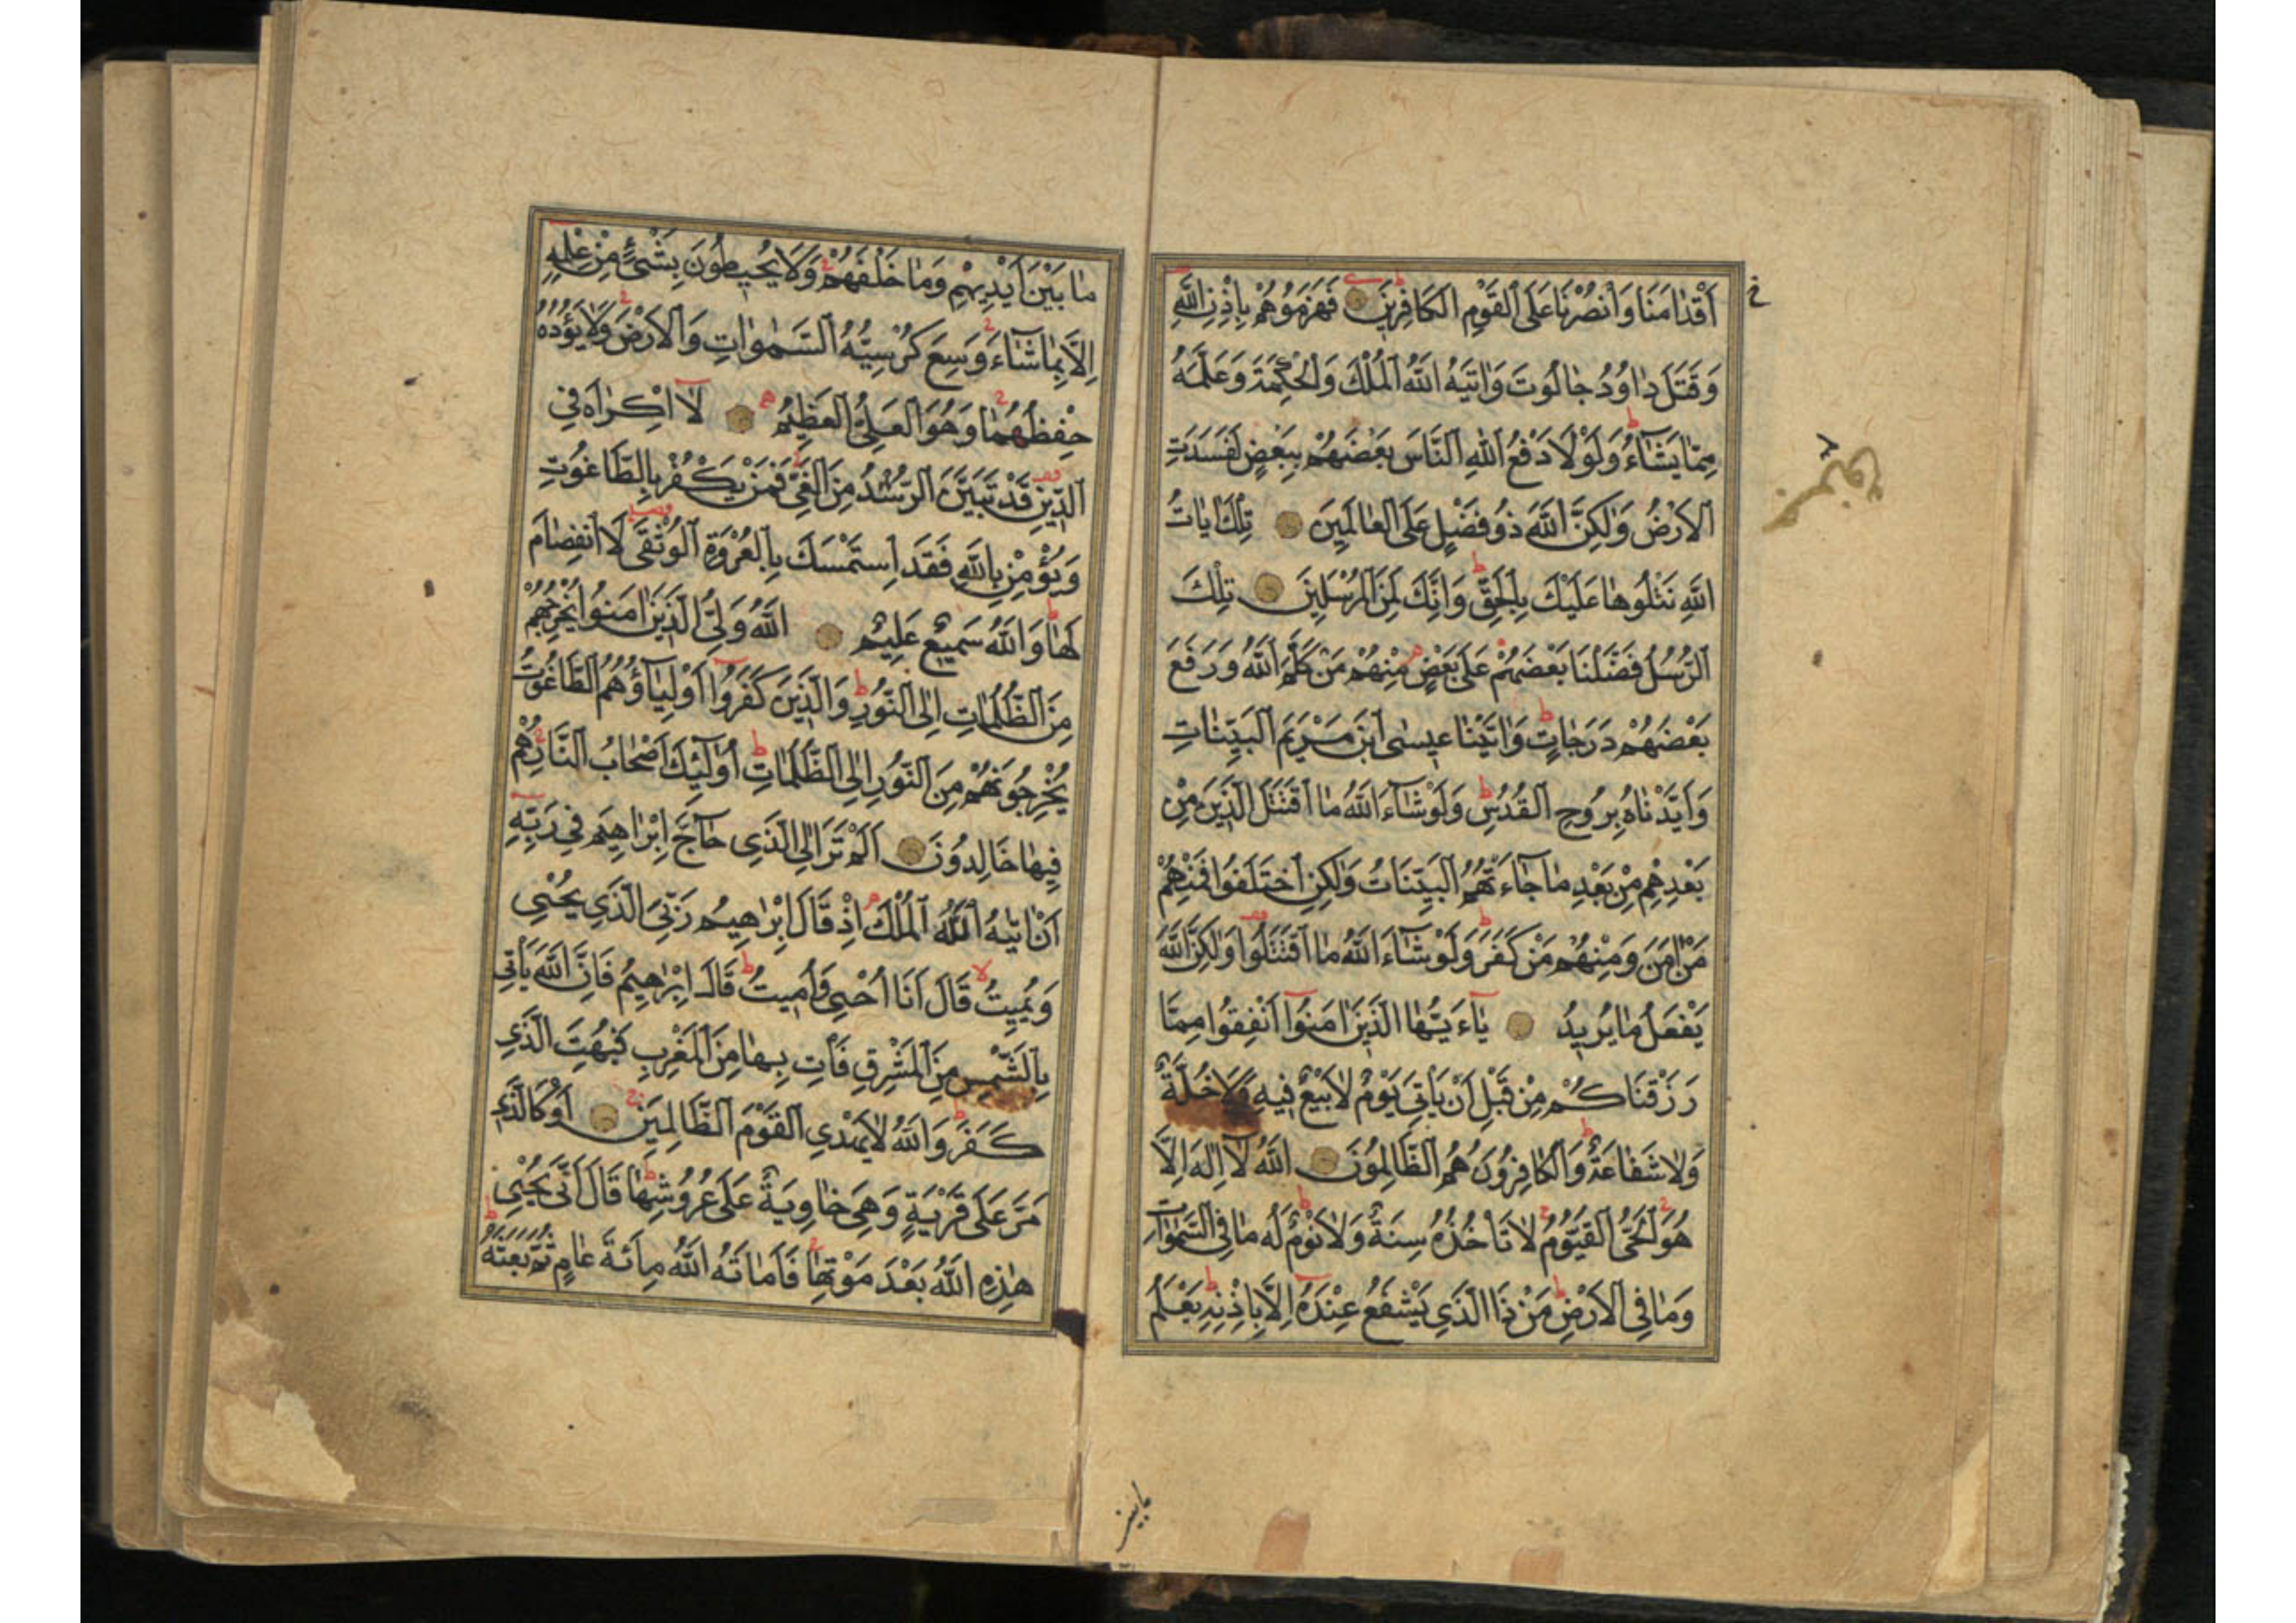 اَقْدٰامَنَا وَانْصُرْنَا عَلَى الْقَوْمِ الْكَافِرِينَ فَهَزَمُوهُمْ بِاِذْنِ اللّٰهِ
وَقَتَلَ دٰاوُدُ جٰالُوتَ وَاٰتٰيهُ اللّٰهُ الْمُلْكَ وَالْحِكْمَةَ وَعَلَّمَهُ
مِمّٰا يَشٰٓاءُ وَلَوْلَا دَفْعُ اللّٰهِ النَّاسَ بَعْضَهُمْ بِبَعْضٍ لَفَسَدَتِ
الْاَرْضُ وَلٰكِنَّ اللّٰهَ ذُو فَضْلٍ عَلَى الْعٰالَمِينَ تِلْكَ اٰيٰاتُ
اللّٰهِ نَتْلُوهٰا عَلَيْكَ بِالْحَقِّ وَاِنَّكَ لَمِنَ الْمُرْسَلِينَ تِلْكَ
الرُّسُلُ فَضَّلْنَا بَعْضَهُمْ عَلٰى بَعْضٍ مِنْهُمْ مَنْ كَلَّمَ اللّٰهُ وَرَفَعَ
بَعْضَهُمْ دَرَجٰاتٍ وَاٰتَيْنٰا عِيسَى ابْنَ مَرْيَمَ الْبَيِّنٰاتِ
وَاَيَّدْنٰاهُ بِرُوحِ الْقُدُسِ وَلَوْ شٰٓاءَ اللّٰهُ مَا اقْتَتَلَ الَّذِينَ مِنْ
بَعْدِهِمْ مِنْ بَعْدِ مٰا جٰٓاءَتْهُمُ الْبَيِّنَاتُ وَلٰكِنِ اخْتَلَفُوا فَمِنْهُمْ
مَنْ اٰمَنَ وَمِنْهُمْ مَنْ كَفَرَ وَلَوْ شٰٓاءَ اللّٰهُ مَا اقْتَتَلُوا وَلٰكِنَّ اللّٰهَ
يَفْعَلُ مٰا يُرِيدُ يٰٓاءَيُّهَا الَّذِينَ اٰمَنُوا اَنْفِقُوا مِمَّا
رَزَقْنَاكُمْ مِنْ قَبْلِ اَنْ يَاْتِيَ يَوْمٌ لَا بَيْعٌ فِيهِ وَلَا خُلَّةٌ
وَلَا شَفٰاعَةٌ وَالْكٰافِرُونَ هُمُ الظّٰالِمُونَ اللّٰهُ لَا اِلٰهَ اِلَّا
هُوَ الْحَيُّ الْقَيُّومُ لَا تَاْخُذُهُ سِنَةٌ وَلَا نَوْمٌ لَهُ مٰا فِي السَّمٰوَاتِ
وَمٰا فِي الْاَرْضِ مَنْ ذَا الَّذِي يَشْفَعُ عِنْدَهُ اِلَّا بِاِذْنِهِ يَعْلَمُ
مٰا بَيْنَ اَيْدِيهِمْ وَمٰا خَلْفَهُمْ وَلَا يُحِيطُونَ بِشَيْءٍ مِنْ عِلْمِهِ
اِلَّا بِمٰا شٰٓاءَ وَسِعَ كُرْسِيُّهُ السَّمٰوَاتِ وَالْاَرْضَ وَلَا يَؤُدُهُ
حِفْظُهُمٰا وَهُوَ الْعَلِيُّ الْعَظِيمُ لَا اِكْرٰاهَ فِي
الدِّينِ قَدْ تَبَيَّنَ الرُّشْدُ مِنَ الْغَيِّ فَمَنْ يَكْفُرْ بِالطَّاغُوتِ
وَيُؤْمِنْ بِاللّٰهِ فَقَدِ اسْتَمْسَكَ بِالْعُرْوَةِ الْوُثْقٰى لَا انْفِصٰامَ
لَهٰا وَاللّٰهُ سَمِيعٌ عَلِيمٌ اللّٰهُ وَلِيُّ الَّذِينَ اٰمَنُوا يُخْرِجُهُمْ
مِنَ الظُّلُمٰاتِ اِلَى النُّورِ وَالَّذِينَ كَفَرُوا اَوْلِيٰٓاؤُهُمُ الطَّاغُوتُ
يُخْرِجُونَهُمْ مِنَ النُّورِ اِلَى الظُّلُمٰاتِ اُولٰٓئِكَ اَصْحٰابُ النَّارِ هُمْ
فِيهٰا خَالِدُونَ اَلَمْ تَرَ اِلَى الَّذِي حٰٓاجَّ اِبْرٰاهِيمَ فِي رَبِّهِ
اَنْ اٰتٰيهُ اللّٰهُ الْمُلْكَ اِذْ قَالَ اِبْرٰاهِيمُ رَبِّيَ الَّذِي يُحْيِي
وَيُمِيتُ قَالَ اَنَا اُحْيِي وَاُمِيتُ قَالَ اِبْرٰهِيمُ فَاِنَّ اللّٰهَ يَاْتِي
بِالشَّمْسِ مِنَ الْمَشْرِقِ فَاْتِ بِهٰا مِنَ الْمَغْرِبِ فَبُهِتَ الَّذِي
كَفَرَ وَاللّٰهُ لَا يَهْدِي الْقَوْمَ الظَّالِمِينَ اَوْ كَالَّذِي
مَرَّ عَلٰى قَرْيَةٍ وَهِيَ خٰاوِيَةٌ عَلٰى عُرُوشِهٰا قَالَ اَنّٰى يُحْيِي
هٰذِهِ اللّٰهُ بَعْدَ مَوْتِهٰا فَاَمٰاتَهُ اللّٰهُ مِائَةَ عٰامٍ ثُمَّ بَعَثَهُ